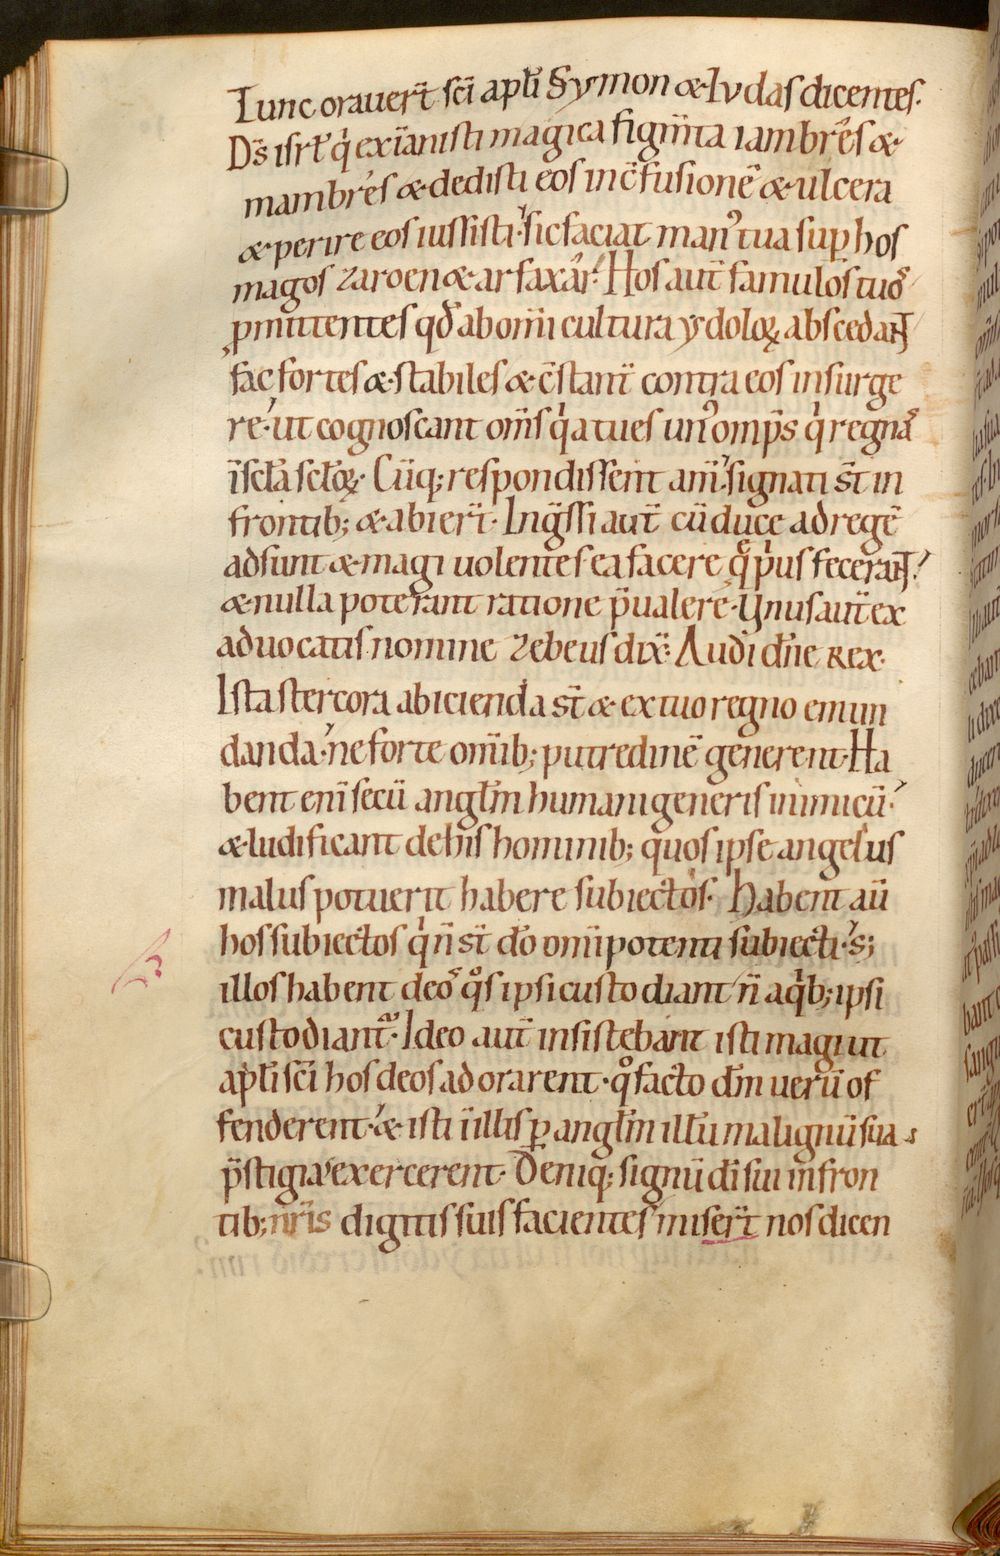 Tunc orauer̄t sc̄i apl̄i Symon & Iudas dicentes.
D̄s isrl̄ qͥ exīanisti magica figm̄ta iambrēs &
mambrēs & dedisti eos in c̄fusionē & ulcera
& perire eos iussisti. sic faciat manꝰ tua suꝑ hos
magos zaroen & arfaxar. Hos aut̄ famulos tuoˢ
ꝓmittentes qđ ab om̄i cultura ydoloꝝ abscedant
fac fortes & stabiles & c̄stant̄ contra eos insurge
re. ut cognoscant om̄s qͥa tu es unꝰ omp̄s qͥ regnaˢ
in scl̄a scl̄oꝝ. Cūq; respondissent am̄. signati st̄ in
frontib; & abier̄t. Ingͣssi aut̄ cū duce ad regē
adsunt & magi uolentes ea facere q̄ pͥus fecerant.
& nulla poterant ratione p̄ualere. Vnus aut̄ ex
aduocatis nomine zebeus dix̄. Audi dn̄e rex.
Ista stercora abicienda st̄ & ex tuo regno emun
danda. ne forte om̄ib; putredinē generent. Ha
bent eni̅ secū angl̄m humani generis inimicū.
& ludificant de his hominib; quos ipse angelus
malus potuerit habere subiectos. Habent aū
hos subiectos qͥ n̄ st̄ dō om̄ipotenti subiecti. s;
illos habent deoˢ qͦs ipsi custodiant n̄ a qͥb; ipsi
custodiant᷑. Ideo aut̄ insistebant isti magi ut
apl̄i sc̄i hos deos adorarent. qͦ facto dm̄ uerū of
fenderent. & isti in illis ꝑ angl̄m illū malignū sua
p̄stigia exercerent. Deniq; signū dī sui in fron
tib; nr̄is digitis suis facientes miser̄t nos dicen